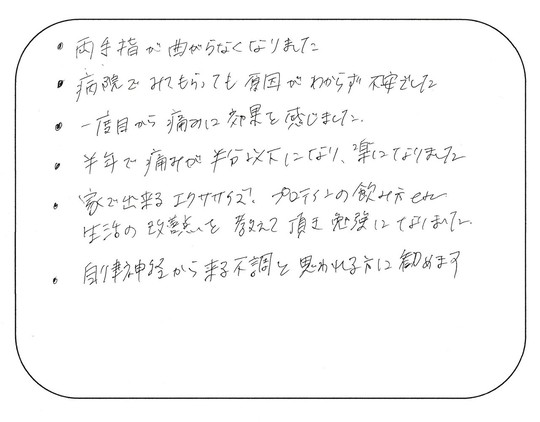 ・両手指が曲がらなくなりました
・病院でみてもらっても原因がわからず不安でした
・一度目から痛みに効果を感じました。
・半年で痛みが半分以下になり、楽になりました
・家で出来るエクササイズ、プロテインの飲み方etc
生活の改善点を教えて頂き勉強になりました。
・自律神経から来る不調と思われる方に勧めます